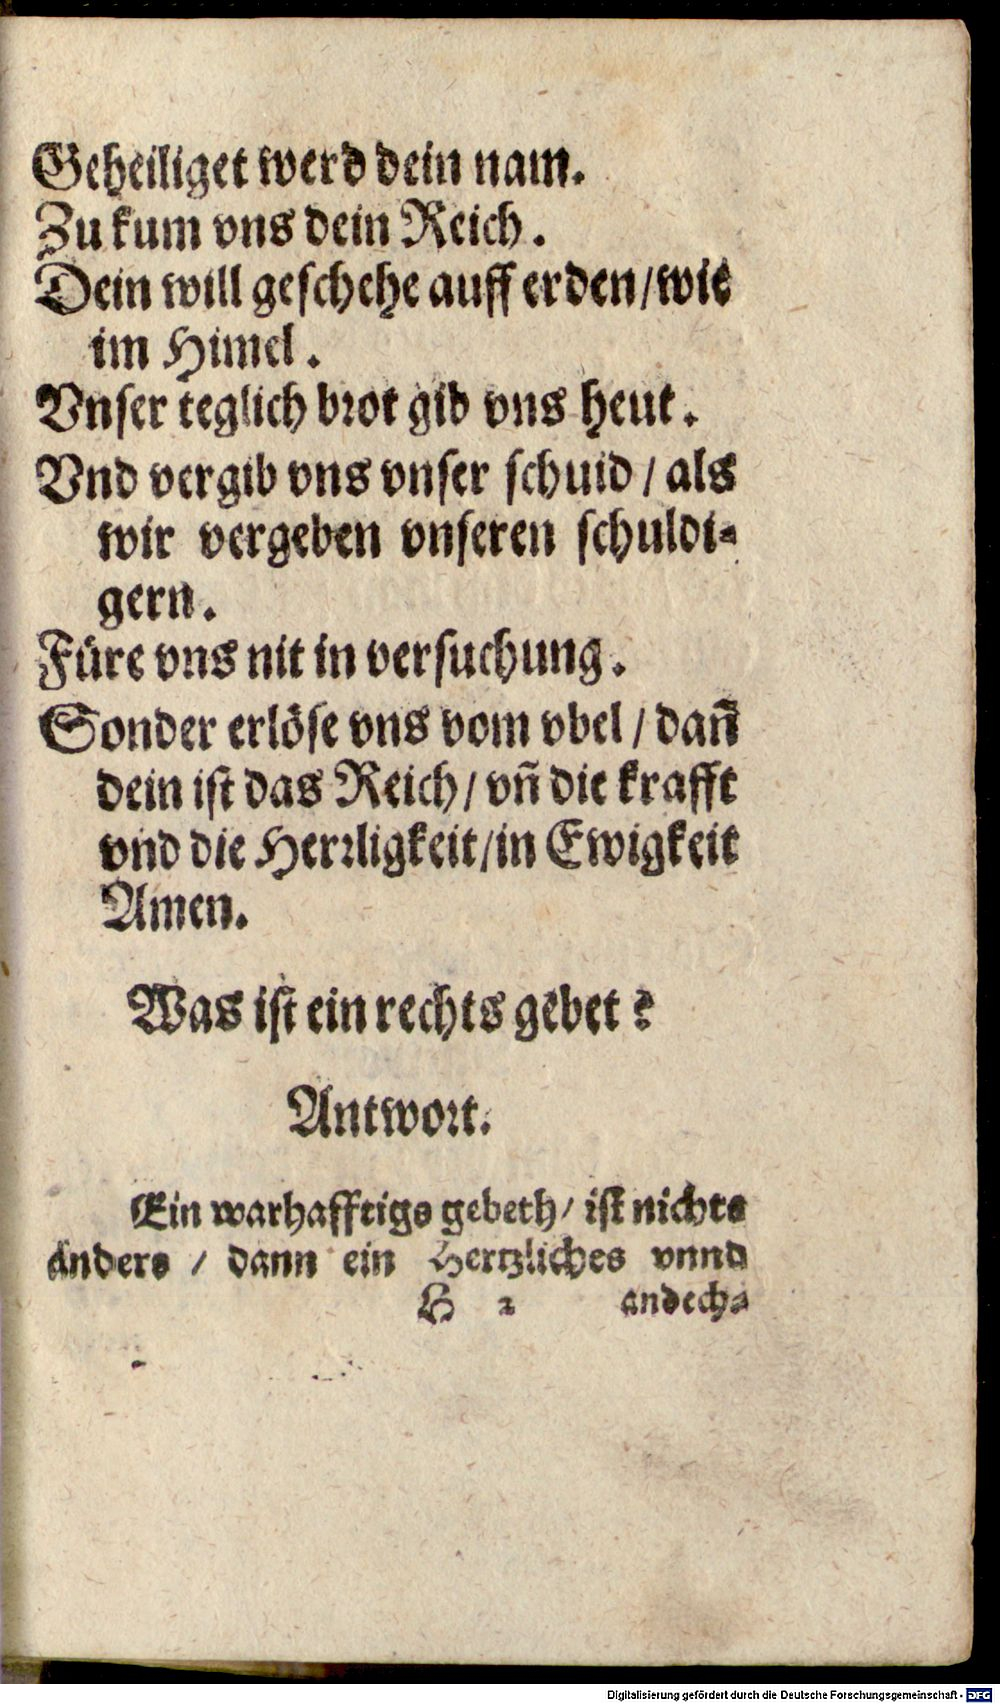 Geheiliget werd dein nam.
Zu kum vns dein Reich.
Dein will geschehe auff erden/wie
im Himel.
Vnser teglich brot gib vns heut.
Vnd vergib vns vnser schuld / als
wir vergeben vnseren schuldi-
gern.
Füre vns nit in versuchung.
Sonder erlöse vns vom vbel / dañ
dein ist das Reich / vñ die krafft
vnd die Herrligkeit/in Ewigkeit
Amen.
Was ist ein rechts gebet?
Antwort.
Ein warhafftigs gebeth/ ist nichts
anders / dann ein Hertzliches vnnd
H 2 andech-
Digitalisierung gefördert durch die Deutsche Forschungsgemeinschaft - DFG